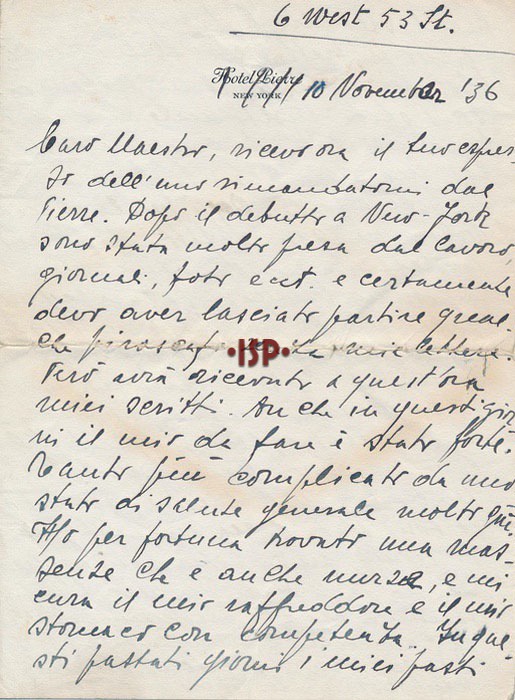 6 West 53 St.
Hotel Pierre
NEW YORK
10 November '36
Caro Maestro, ricevo ora il Suo espres-
so dell'uno rimandatomi dal
Pierre. Dopo il debutto a New-York
sono stata molto presa dal lavoro,
giornali, foto ect. e certamente
devo aver lasciato partire qual-
che piroscafo mia lettera.
ISP
Però avrà ricevuto a quest'ora
miei scritti. Anche in questi gior-
ni il mio da fare è stato forte.
Tanto più complicato da uno
stato di salute generale molto giù.
Ho per fortuna trovato una mas-
seuse che è anche nurse, e mi
cura il mio raffreddore e il mio
stomaco con competenza. In que-
sti passati giorni i miei pasti